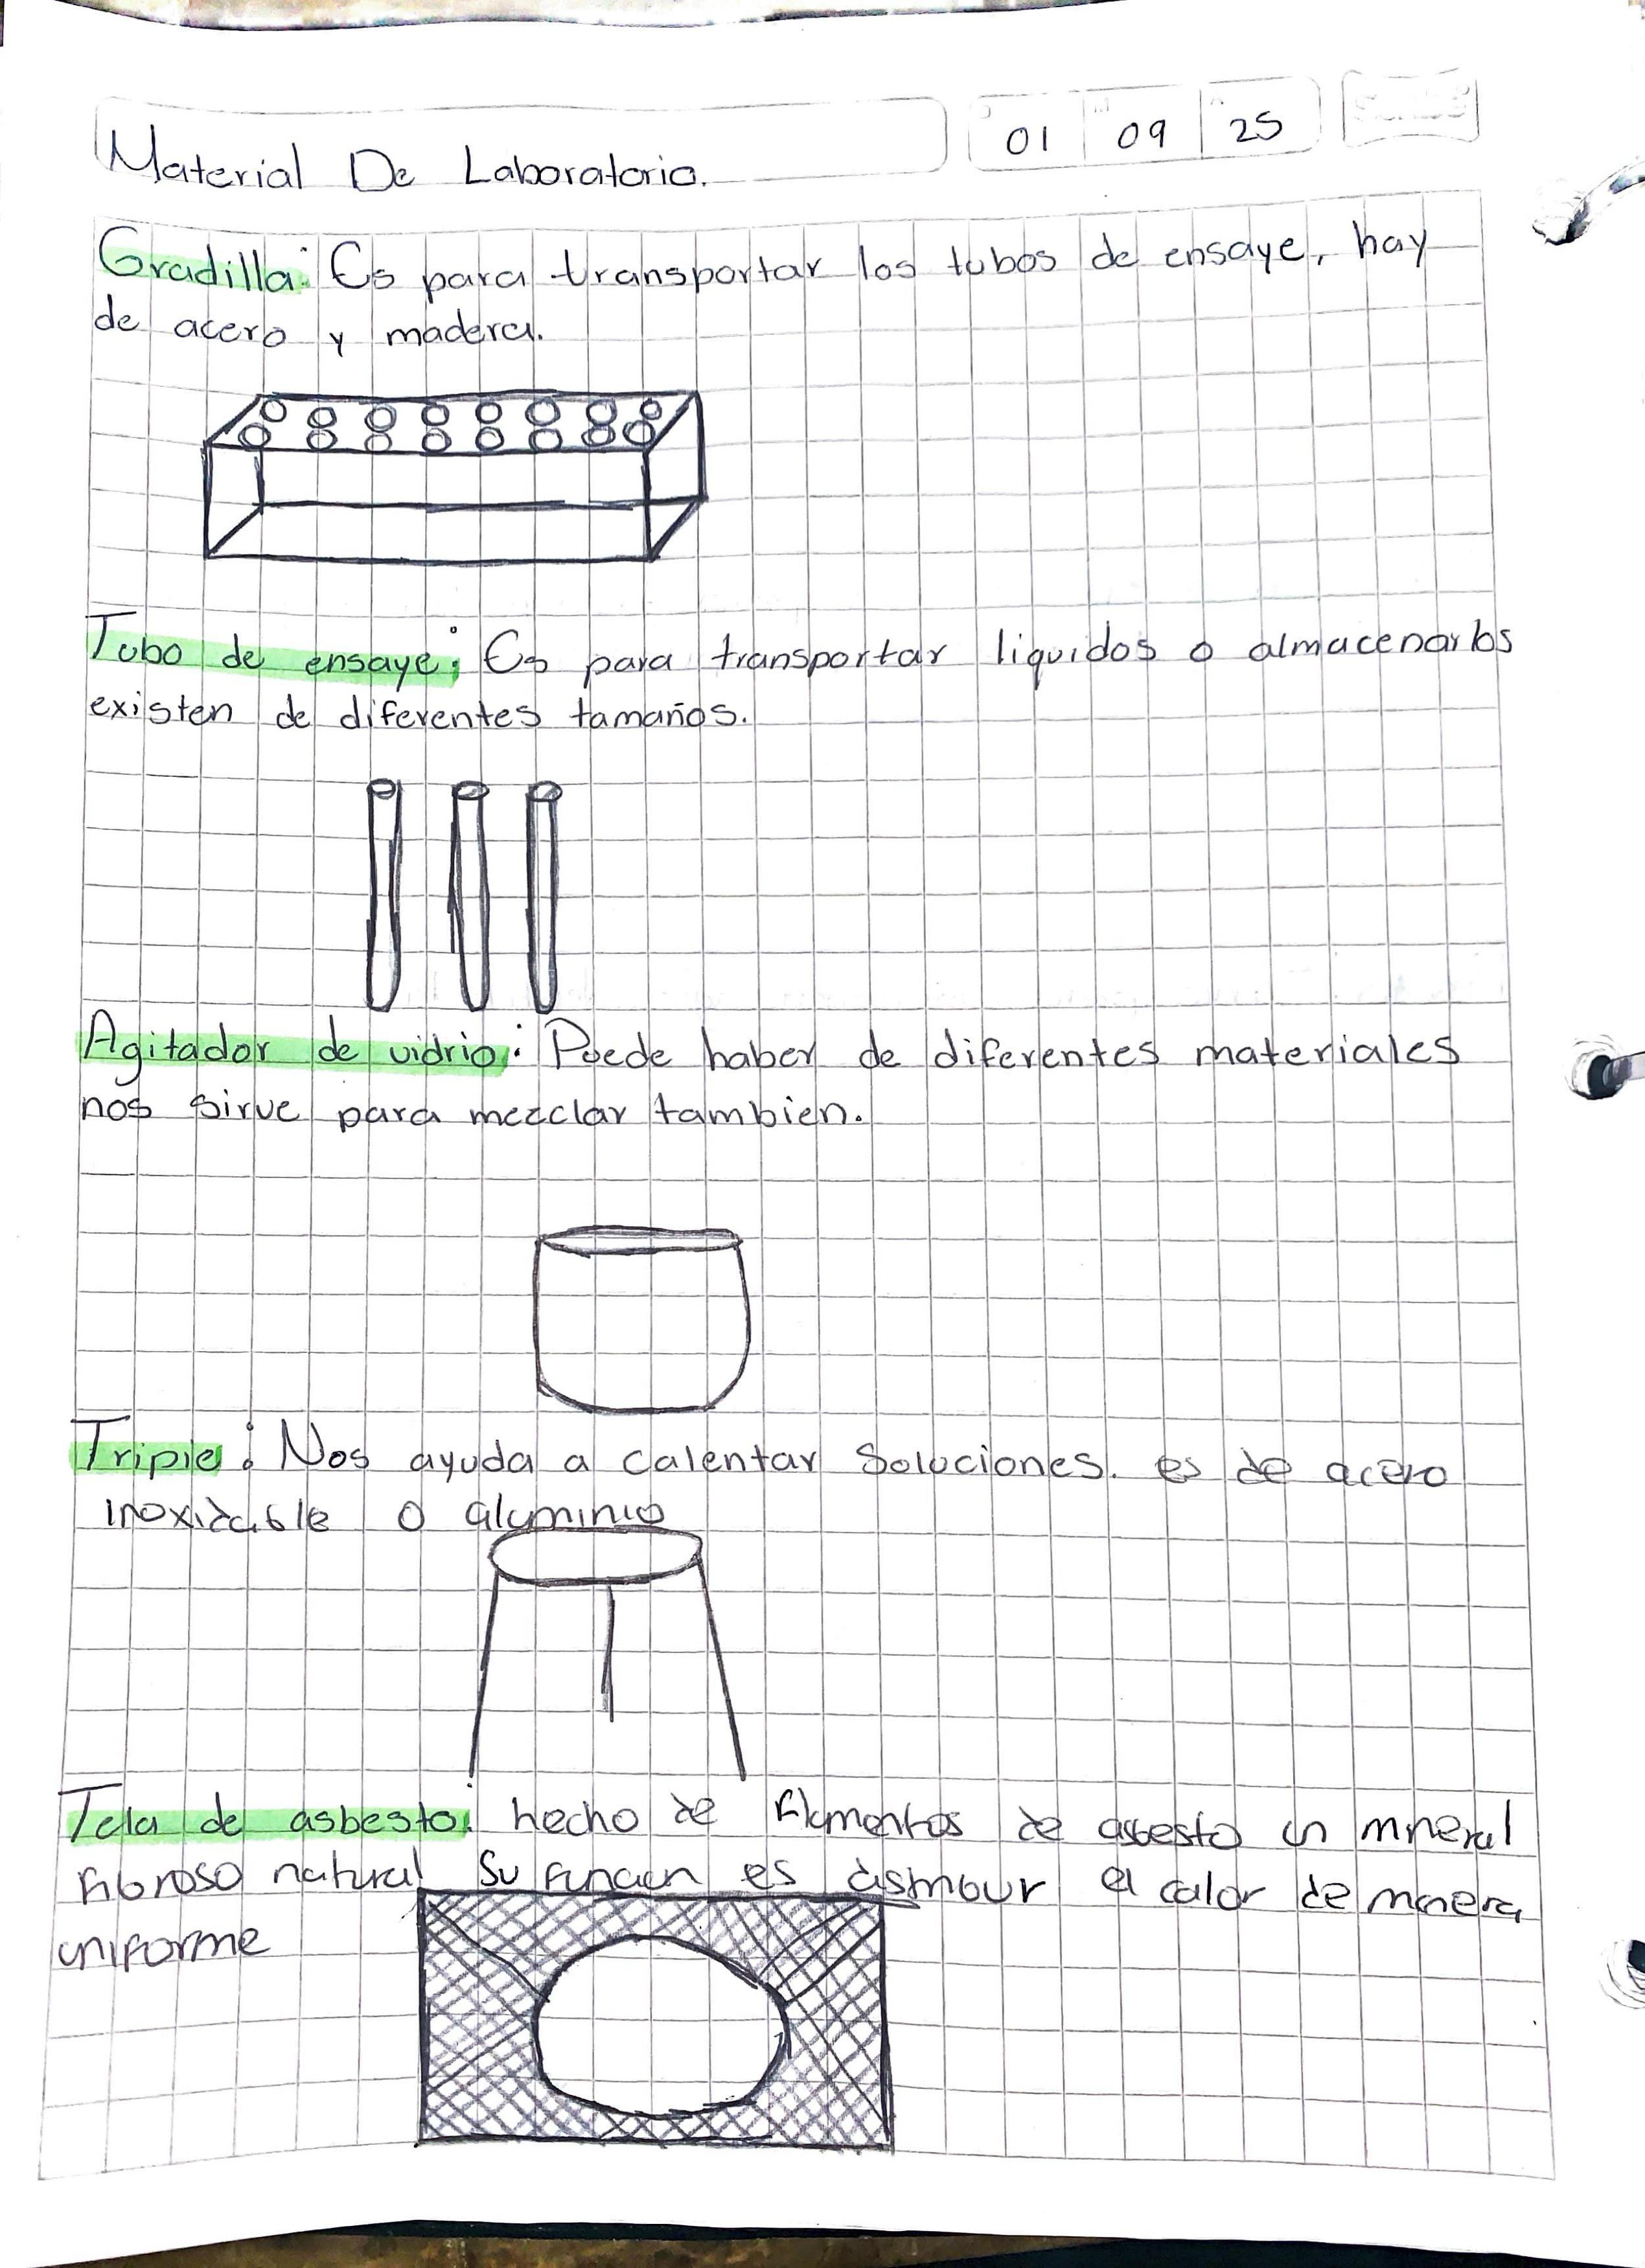 Material De Laboratorio.
01 09 25
Gradilla: Es para transportar los tubos de ensaye, hay
de acero y madera.
Tubo de ensaye: Es para transportar liquidos o almacenarlos
existen de diferentes tamaños.
Agitador de vidrio: Puede haber de diferentes materiales
nos sirve para mezclar tambien.
Tripie: Nos ayuda a calentar soluciones. es de acero
inoxidable o aluminio
Tela de asbesto: hecho de filamentos de asbesto un mineral
fibroso natural Su funcion es
el calor de manera
uniforme